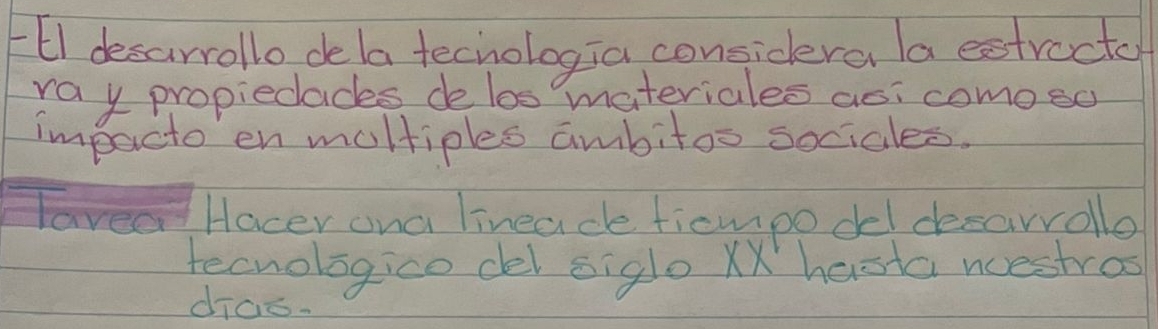 - El desarrollo de la tecnología considera la estructu-
ra y propiedades de los materiales así como su
impacto en multiples ámbitos sociales.
Tarea Hacer una línea de tiempo del desarrollo
tecnológico del siglo XX hasta nuestros
días.